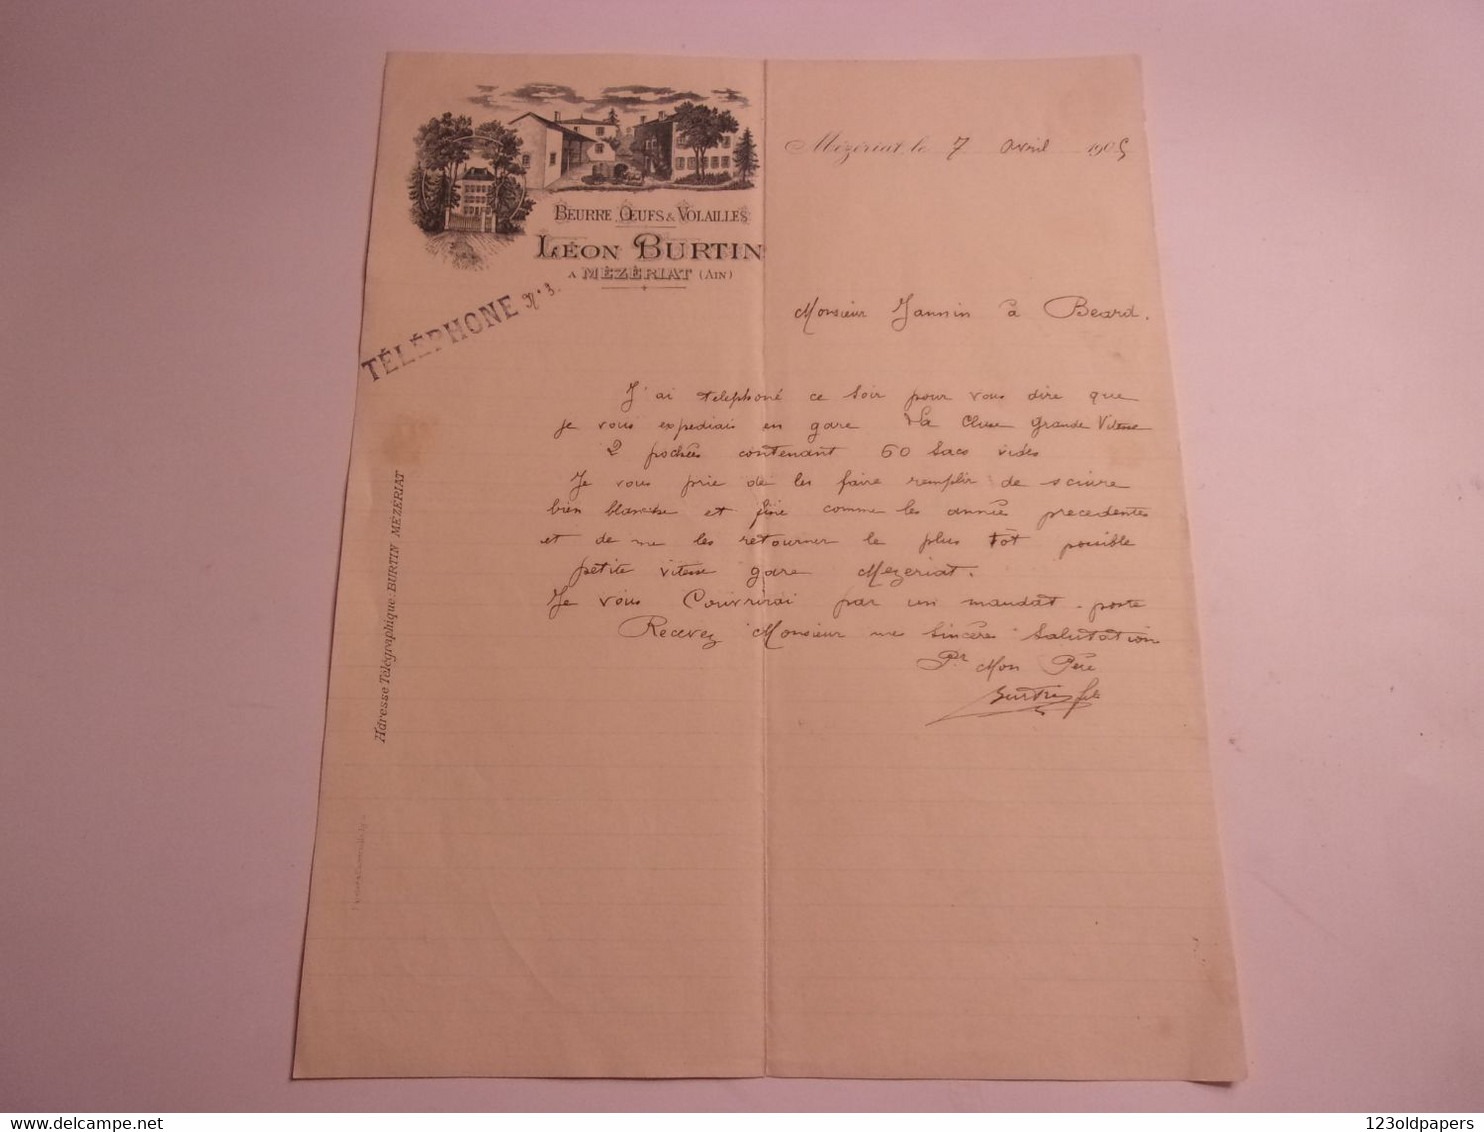 BEURRE, ŒUFS & VOLAILLES
LÉON BURTIN
A MÉZÉRIAT (AIN)
TÉLÉPHONE N° 3.
Adresse Télégraphique: BURTIN MÉZÉRIAT
Mézériat, le 7 Avril 1905
Monsieur Jannin à Beard.
J'ai telephoné ce soir pour vous dire que
je vous expediais en gare La Cluse grande Vitesse
2 pochées contenant 60 sacs vides
Je vous prie de les faire remplir de sciure
bien blanche et fine comme les année precedentes
et de me les retourner le plus tôt possible
petite vitesse gare Mezeriat.
Je vous Couvrirai par un mandat-poste
Recevez Monsieur mes sincères salutation
Pr Mon Père
Burtin fils
123oldpapers